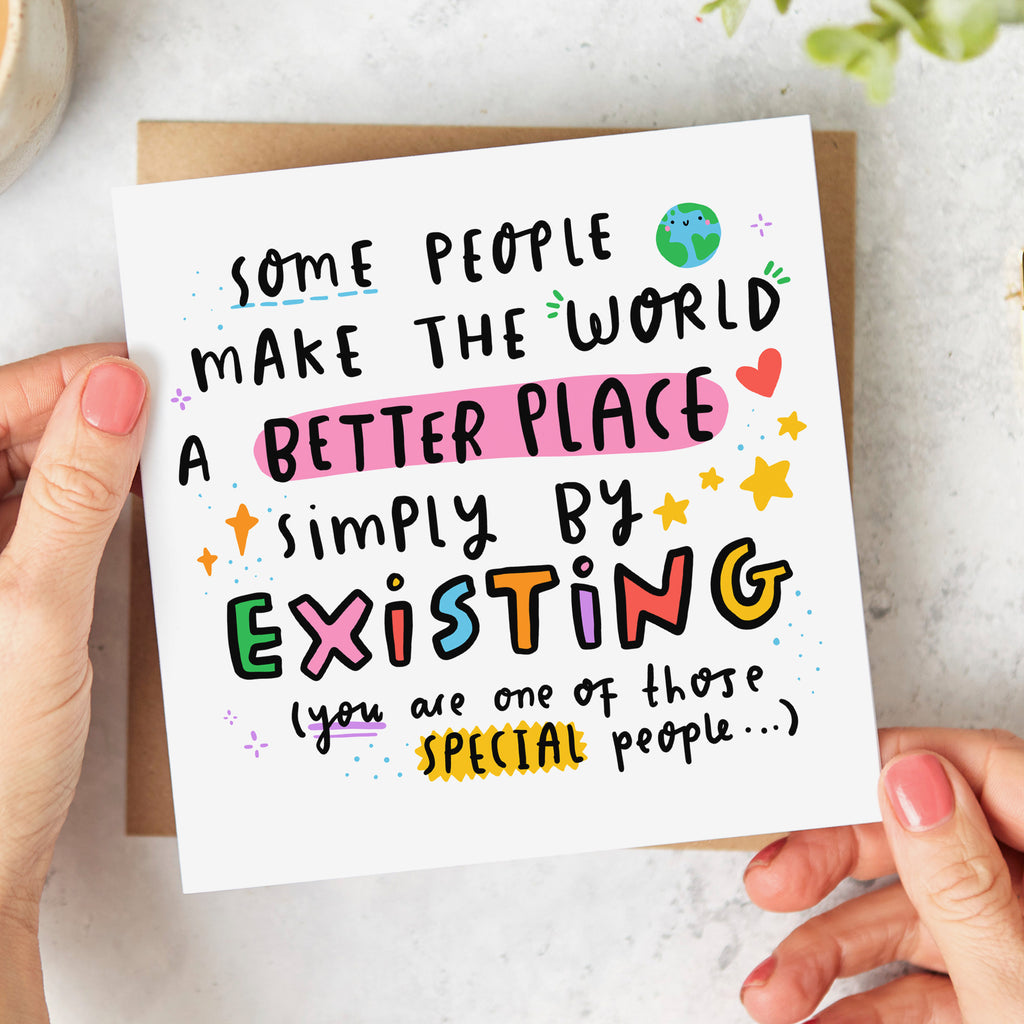 SOME PEOPLE
MAKE THE WORLD
A BETTER PLACE
SIMPLY BY
EXISTING
(you are one of those
SPECIAL people...)